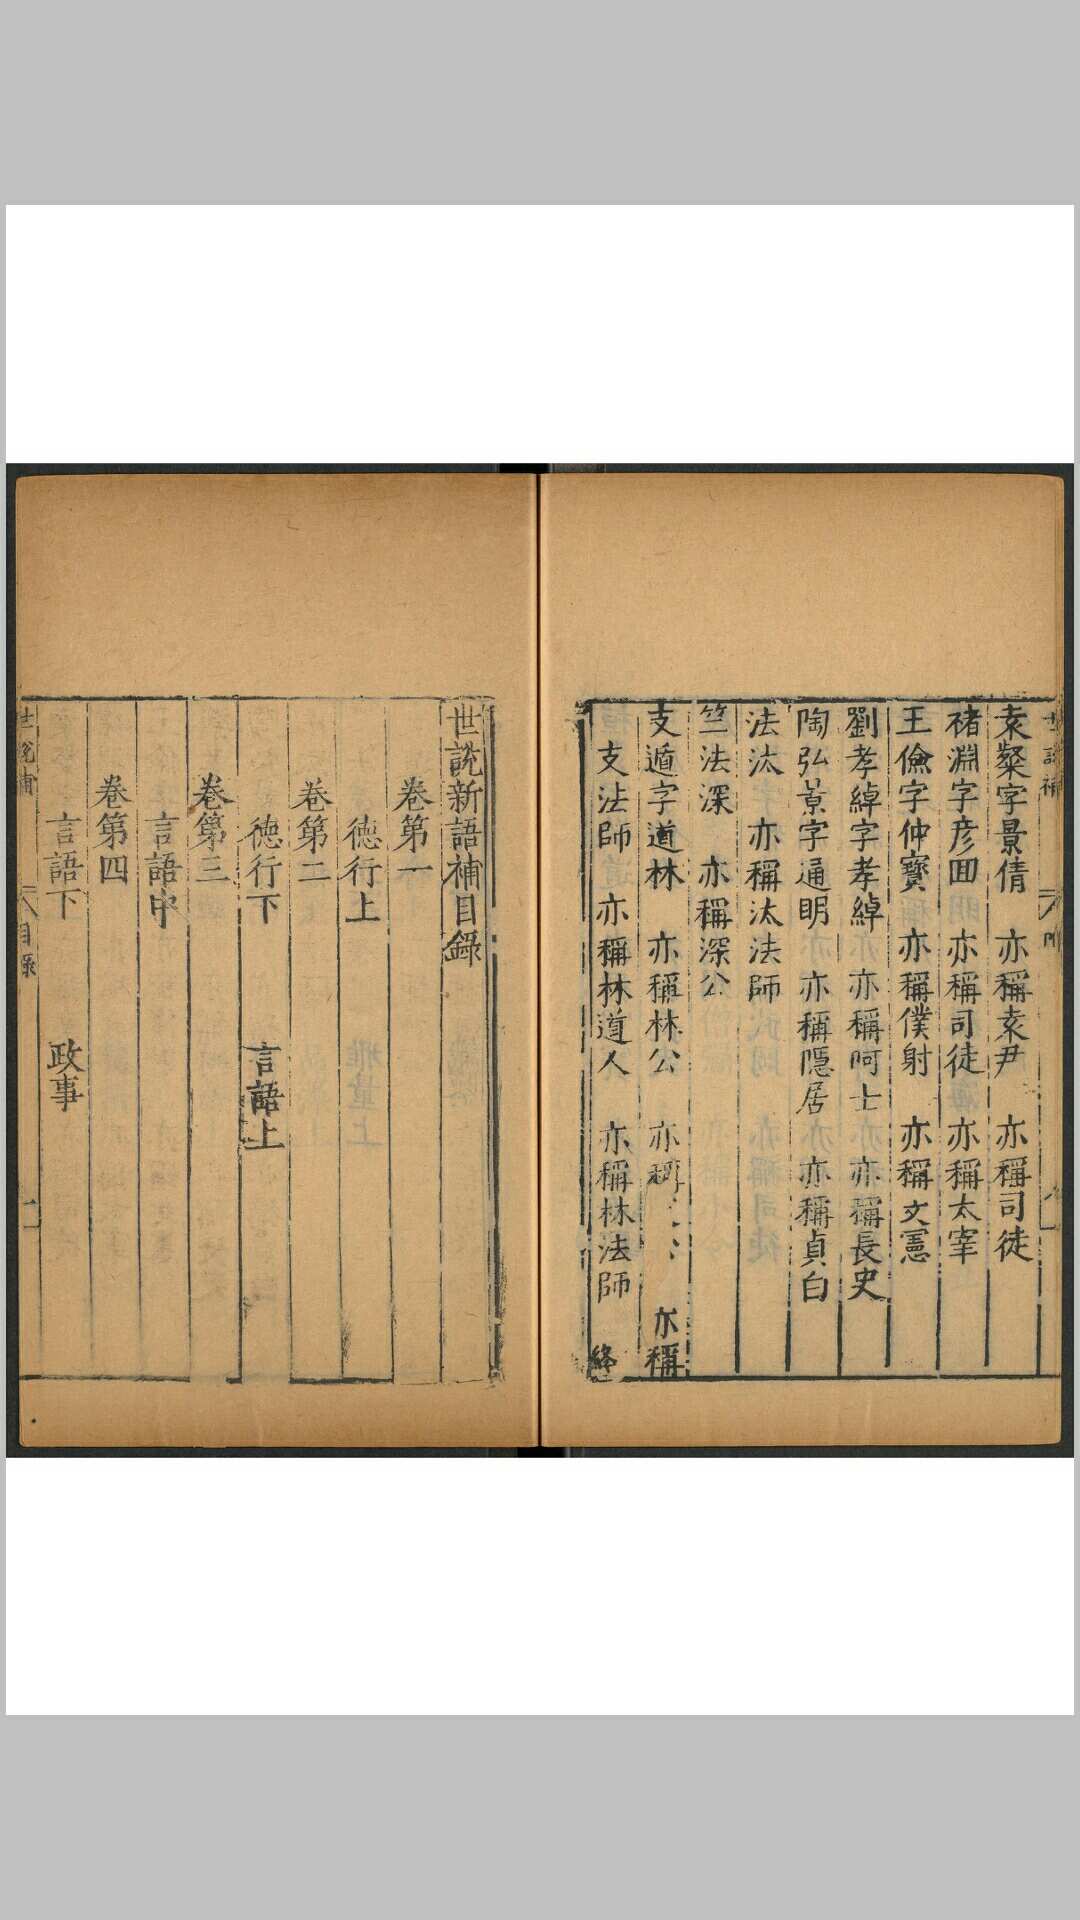 袁粲字景倩　亦稱袁尹　亦稱司徒
禇淵字彦囬　亦稱司徒　亦稱太宰
王儉字仲寳　亦稱僕射　亦稱文憲
劉孝綽字孝綽　亦稱呵士　亦稱長史
陶弘景字通明　亦稱隱居　亦稱貞白
法汰　亦稱汰法師
竺法深　亦稱深公
支遁字道林　亦稱林公　亦稱　亦稱
支法師　亦稱林道人　亦稱林法師　終
世說新語補目録
卷第一
德行上
卷第二
德行下　言語上
卷第三
言語中
卷第四
言語下　政事
世說補　目録　一